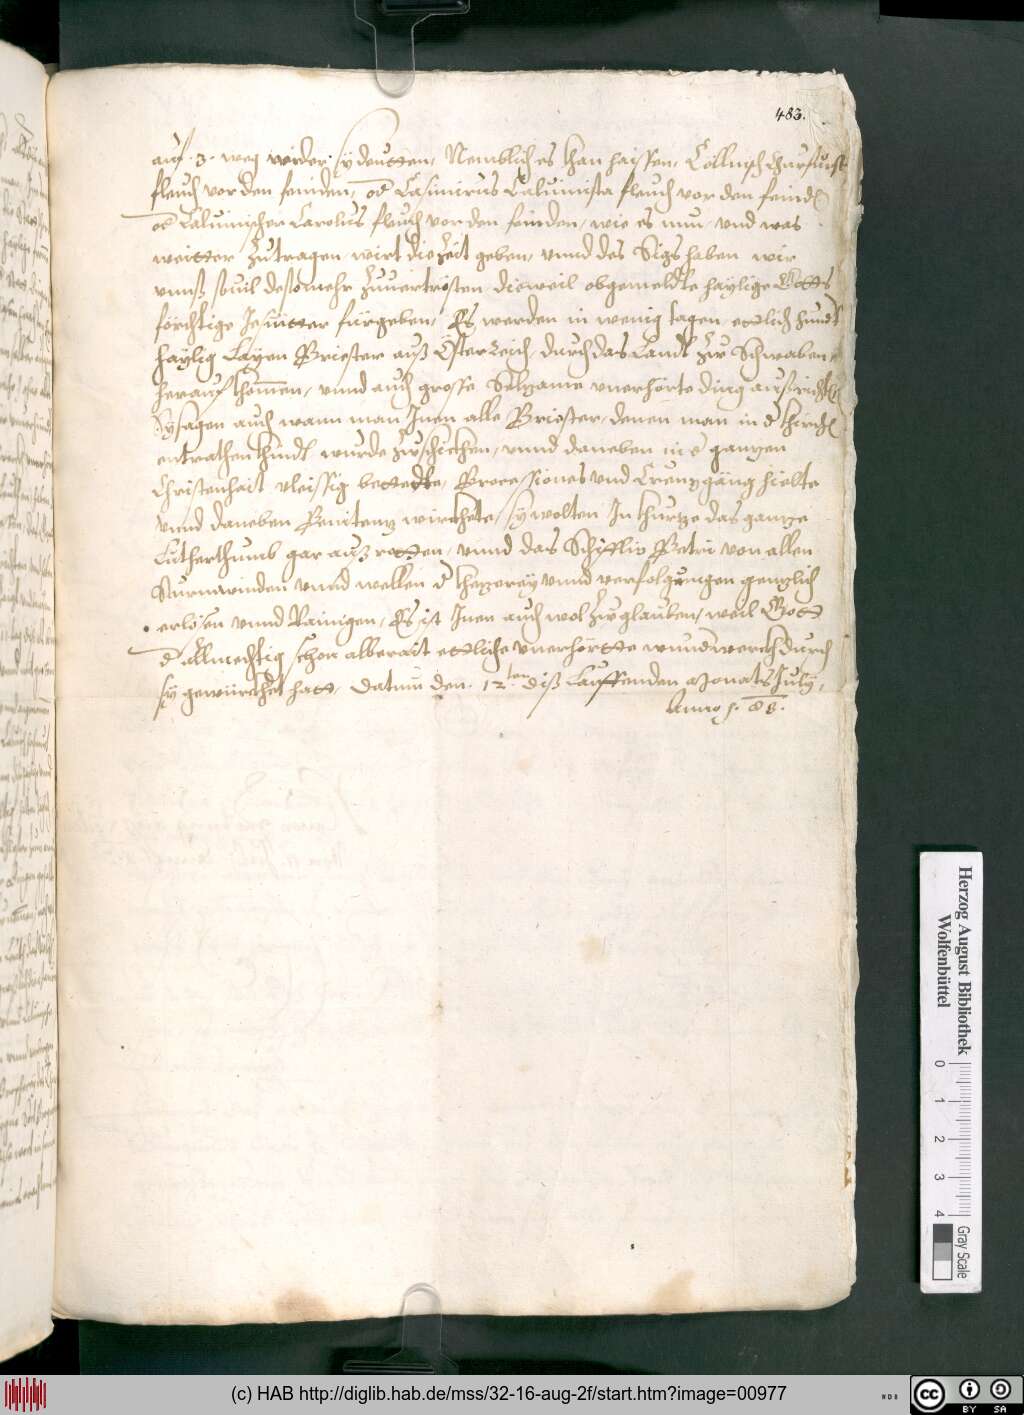 483.
auf .3. weg wider sy deutten, Nemblich es khan haissen, Cöllnisch Churfürst
fleuch vor den feinden, od Casimirus Caluinista fleuch vor den feind
od Caluinischer Carolus fleuch vor den feinden, wie es nun, vnd was
weitter Zutragen wirt die Zeit geben, vnnd des Sigs haben wir
vnnß souil destomehr Zuuertrösten dieweil obgemeldte haylige Gotts
förchtige Jesuitter fürgeben, Es werden in wenig tagen ettlich hundt
haylig Layen Briester auß Össterreich, durch das Landt Zu Schwaben
herauf khommen, vnnd auch grosse Seltzame vnerhörte ding außrichten
Sy sagen auch wann man Inen alle Briester, denen man in d khirch
entrathen khündt wurde Zuschickhen, vnnd daneben in d gantzen
Christenhait vleissig bettedte, Processiones vnd Creutzgäng hielte
vnnd daneben Penitentz wirckhete, sy wolten In khurtze das gantze
Lutherthumb gar auß rotten, vnnd das Schifflin Petri von allen
Sturmwinden vnnd wellen d khetzerey vnnd verfolgungen gentzlich
erlösen vnnd Rainigen, Es ist Inen auch wol Zuglauben, weil Gott
d allmechtig schon alberait ettliche vnerhörtte wunderwerckh durch
sy gewürckhet hatt, Datum den. 12ten diß Lauffenden Monats July,
Anno p. 88.
Herzog August Bibliothek
Wolfenbüttel
0 1 2 3 4
Gray Scale
(c) HAB http://diglib.hab.de/mss/32-16-aug-2f/start.htm?image=00977
WDB
cc BY SA